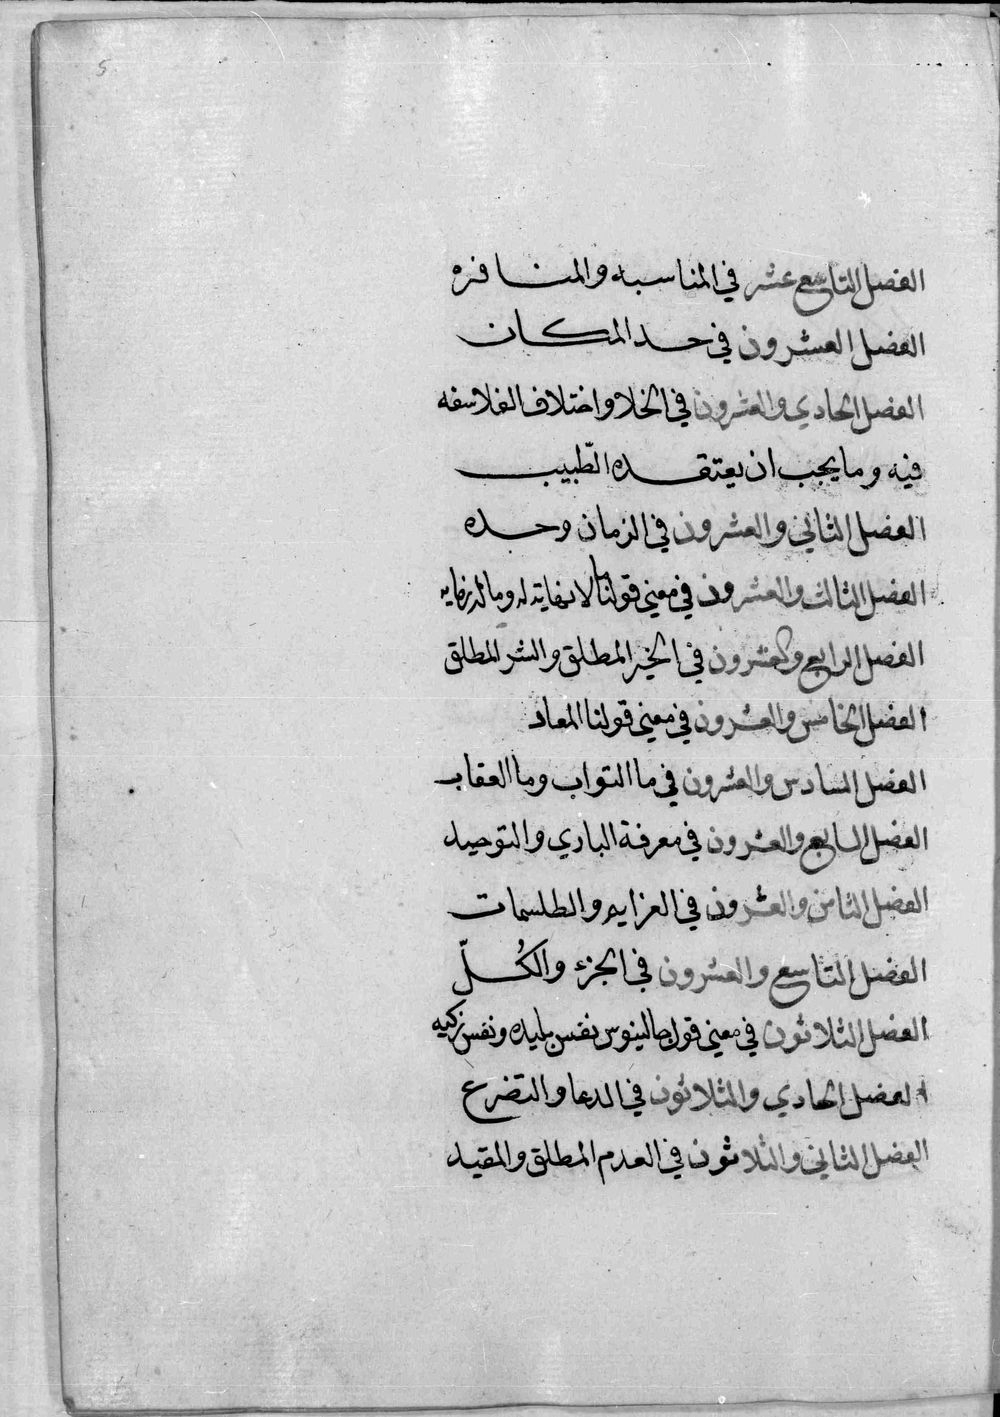 الفصل التاسع عشر في المناسبه والمنافره
الفصل العشرون في حد المكان
الفصل الحادي والعشرون في الخلا واختلاف الفلاسفه
فيه وما يجب ان يعتقده الطّبيب
الفصل الثاني والعشرون في الزمان وحده
الفصل الثالث والعشرون في معنى قولنا ما لا نهاية له وما له نهايه
الفصل الرابع والعشرون في الخير المطلق والشر المطلق
الفصل الخامس والعشرون في معنى قولنا المعاد
الفصل السادس والعشرون في ما الثواب وما العقاب
الفصل السابع والعشرون في معرفة الباري والتوحيد
الفصل الثامن والعشرون في العزايم والطلسمات
الفصل التاسع والعشرون في الجزء والكُلّ
الفصل الثلاثون في معنى قول جالينوس نفس بليده ونفس زكيه
الفصل الحادي والثلاثون في الدعا والتضرع
الفصل الثاني والثلاثون في العدم المطلق والمقيد